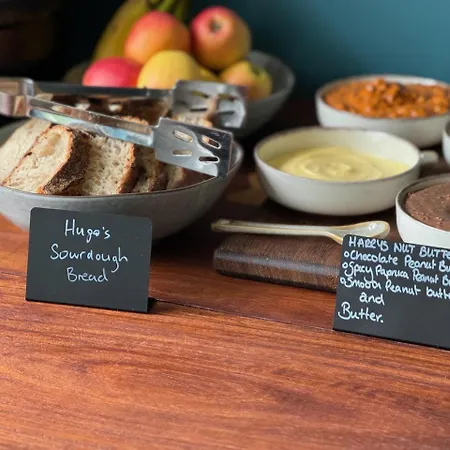 Hugo's
Sourdough
Bread
HARRYS NUT BUTTE
o Chocolate Peanut Bu
o Spicy Paprica Peanut B
o Smooth Peanut butte
and
Butter.